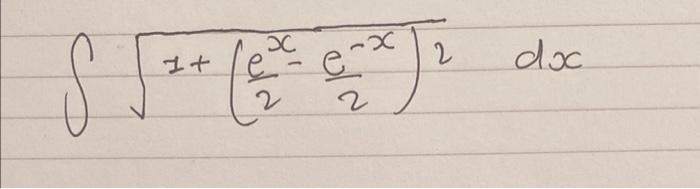 ∫ √(1 + (e^x/2 - e^-x/2)^2) dx